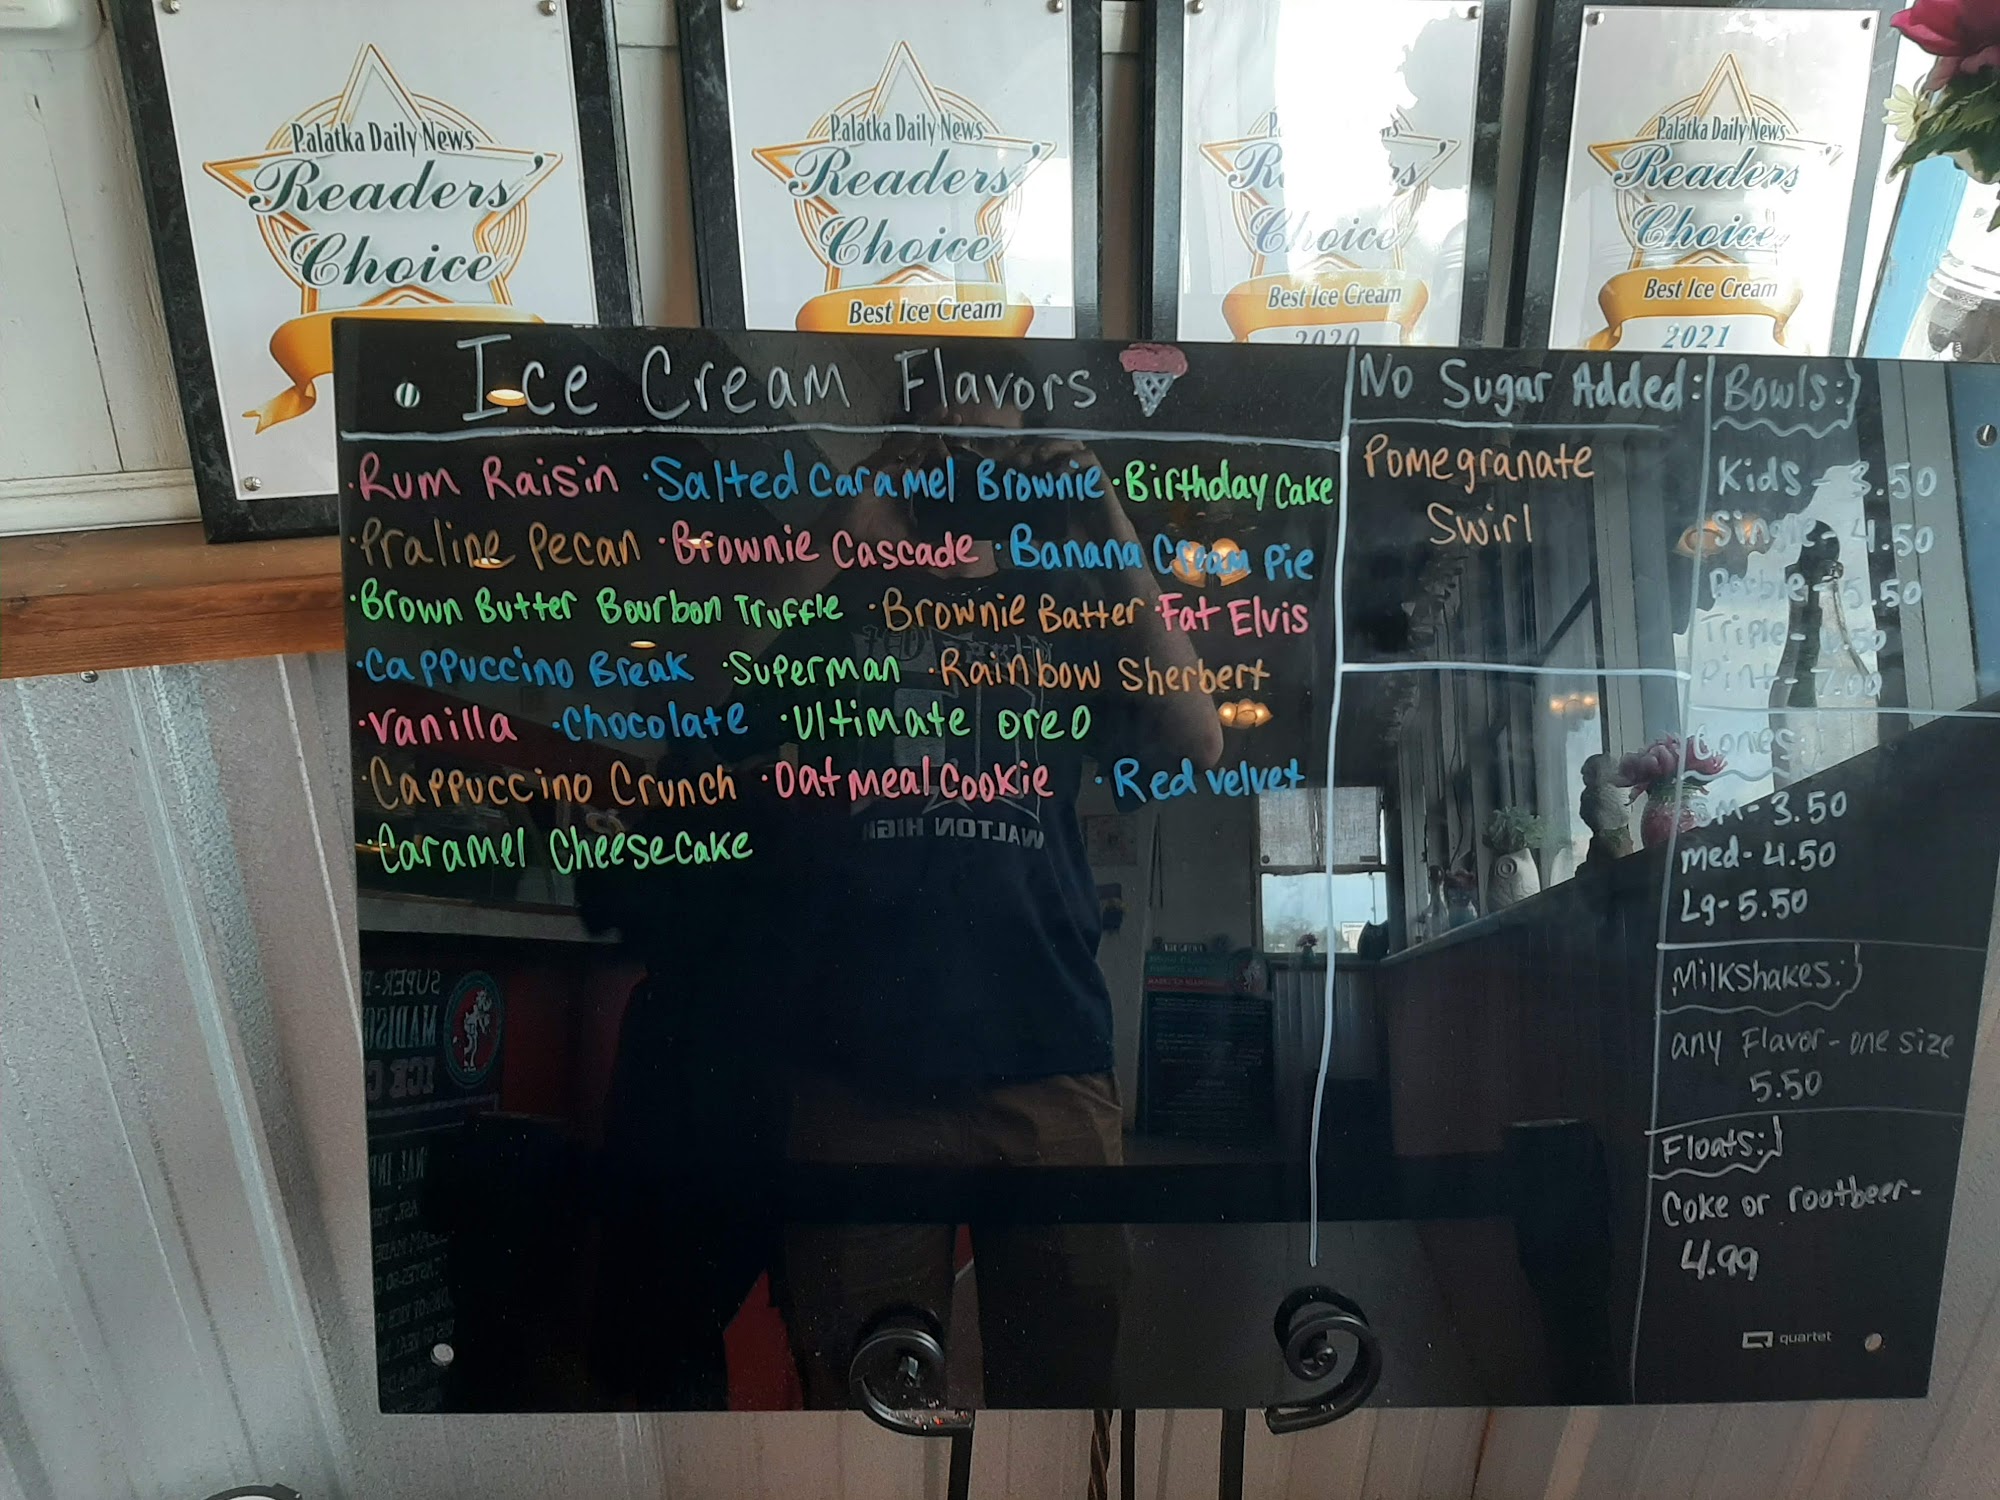 Palatka Daily News
Readers'
Choice
Palatka Daily News
Readers'
Choice
Best Ice Cream
Choice
Best Ice Cream
2020
Palatka Daily News
Readers
Choice
Best Ice Cream
2021
Ice Cream Flavors
·Rum Raisin ·Salted Caramel Brownie ·Birthday Cake
·Praline Pecan ·Brownie Cascade ·Banana Cream Pie
·Brown Butter Bourbon Truffle ·Brownie Batter ·Fat Elvis
·Cappuccino Break ·Superman ·Rainbow Sherbert
·Vanilla ·Chocolate ·Ultimate Oreo
·Cappuccino Crunch ·Oatmeal Cookie ·Red velvet
·Caramel Cheesecake
No Sugar Added:
Pomegranate
Swirl
Bowls:
Kids - 3.50
Single - 4.50
Double - 5.50
Triple - .50
Pint - 7.00
Cones:
Sm - 3.50
med - 4.50
Lg - 5.50
Milkshakes:
any Flavor - one size
5.50
Floats:
Coke or rootbeer -
4.99
quartet
WALTON HIGH
MADISO